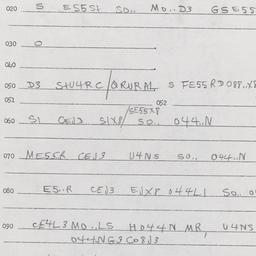 020 S ES5St SO.. MO..D3 GSE55
030 O
040
050 D3 StU4RC/QRURAL S FE55RD08P..X8
051 052
/SE55XP
060 S1 CEJ3 S1XP/ SO.. 044..N
070 ME55R CEJ3 U4NS SO.. 044..N
080 ES..R CEJ3 EJXP 044L1 SO.. 0
090 CE4L3 MO..LS HO44N MR, U4NS
044NG3 CO8J3